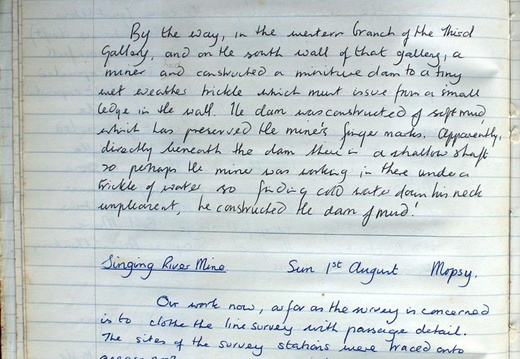 By the way, in the western branch of the Third
Gallery, and on the south wall of that gallery, a
miner and constructed a miniture dam to a tiny
wet weather trickle which must issue from a small
ledge in the wall. The dam was constructed of soft mud,
which has preserved the mine's finger marks. Apparently,
directly beneath the dam there is a shallow shaft
so perhaps the miner was working in there under a
trickle of water so finding cold water down his neck
unpleasent, he constructed the dam of mud!
Singing River Mine. Sun 1st August Mopsy.
Our work now, as far as the survey is concerned
is to clothe the line survey with passage detail.
The sites of the survey stations were traced onto